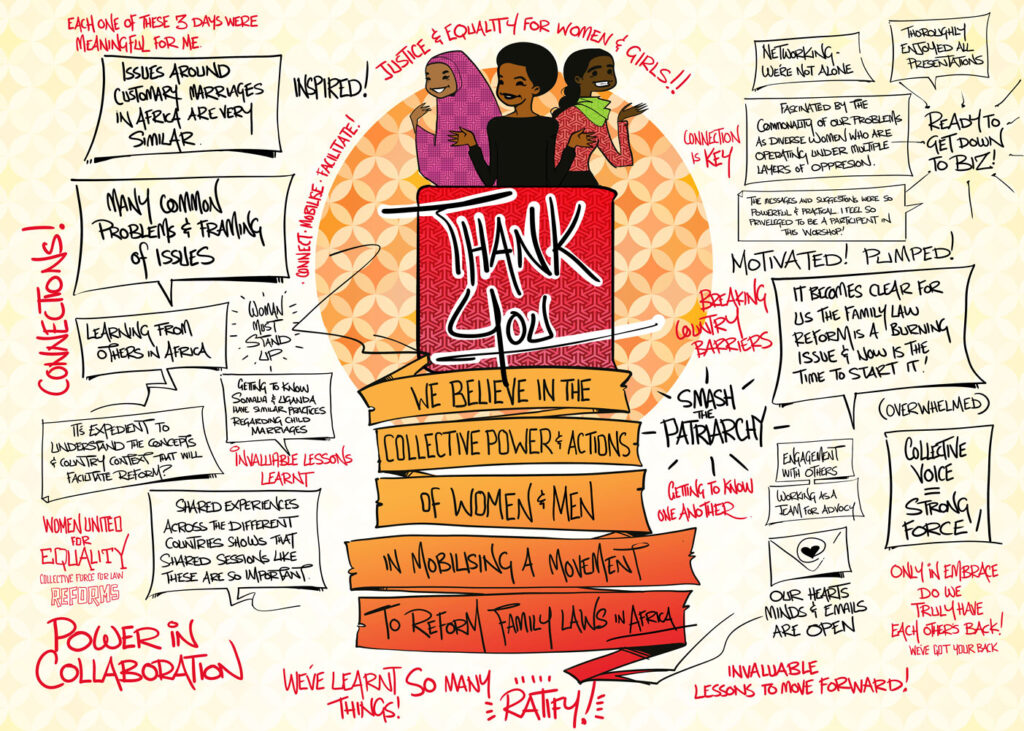 EACH ONE OF THESE 3 DAYS WERE
MEANINGFUL FOR ME.
ISSUES AROUND
CUSTOMARY MARRIAGES
IN AFRICA ARE VERY
SIMILAR.
INSPIRED!
JUSTICE & EQUALITY FOR WOMEN & GIRLS!!
· CONNECT · MOBILISE · FACILITATE!
MANY COMMON
PROBLEMS & FRAMING
OF ISSUES
CONNECTIONS!
LEARNING FROM
OTHERS IN AFRICA
WOMAN
MOST
STAND
UP
GETTING TO KNOW
SOMALIA & UGANDA
HAVE SIMILAR PRACTICES
REGARDING CHILD
MARRIAGES
ITS EXPEDIENT TO
UNDERSTAND THE CONCEPTS
& COUNTRY CONTEXT THAT WILL
FACILITATE REFORM?
INVALUABLE LESSONS
LEARNT
SHARED EXPERIENCES
ACROSS THE DIFFERENT
COUNTRIES SHOWS THAT
SHARED SESSIONS LIKE
THESE ARE SO IMPORTANT.
WOMEN UNITED
FOR
EQUALITY
COLLECTIVE FORCE FOR LAW
REFORMS
POWER IN
COLLABORATION
THANK
YOU
WE BELIEVE IN THE
COLLECTIVE POWER & ACTIONS
OF WOMEN & MEN
IN MOBILISING A MOVEMENT
TO REFORM FAMILY LAWS IN AFRICA
WE'VE LEARNT SO MANY
THINGS!
RATIFY!
NETWORKING -
WERE NOT ALONE
THOROUGHLY
ENJOYED ALL
PRESENTATIONS
CONNECTION
IS KEY
FASCINATED BY THE
COMMONALITY OF OUR PROBLEMS
AS DIVERSE WOMEN WHO ARE
OPERATING UNDER MULTIPLE
LAYERS OF OPPRESION.
READY TO
GET DOWN
TO BIZ!
THE MESSAGES AND SUGGESTIONS WERE SO
POWERFUL & PRACTICAL. I FEEL SO
PRIVELEGED TO BE A PARTICIPANT IN
THIS WORSHOP!
MOTIVATED! PUMPED!
BREAKING
COUNTRY
BARRIERS
IT BECOMES CLEAR FOR
US THE FAMILY LAW
REFORM IS A 'BURNING
ISSUE & NOW IS THE
TIME TO START IT!'
SMASH
THE
PATRIARCHY
(OVERWHELMED)
ENGAGEMENT
WITH OTHERS
WORKING AS A
TEAM FOR ADVOCY
COLLECTIVE
VOICE
=
STRONG
FORCE!!
GETTING TO KNOW
ONE ANOTHER
OUR HEARTS
MINDS & EMAILS
ARE OPEN
ONLY IN EMBRACE
DO WE
TRULY HAVE
EACH OTHER'S BACK!
WE'VE GOT YOUR BACK
INVALUABLE
LESSONS TO MOVE FORWARD!